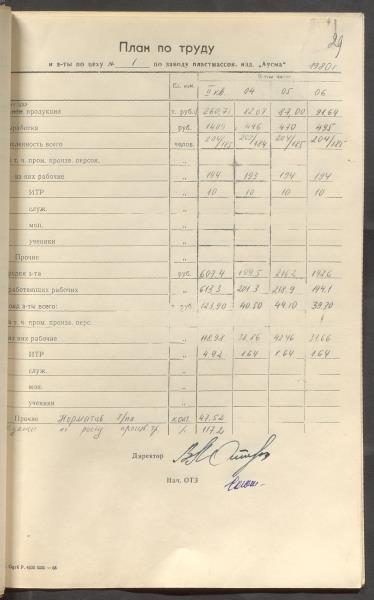 29
План по труду
и з-ты по цеху № 1 по заводу пластмассов. изд. „Аусма" 1980 г
Ед. изм. II кв. 04 05 06
продукция т. руб. 260,71 82.07 87,00 91.64
руб. 1404 446 470 495
всего челов. 204/185 203/184 204/185 204/185
т. ч. пром. произв. персон. „
из них рабочие „ 194 193 194 194
ИТР „ 10 10 10 10
служ. „
моп. „
ученики „
Прочие „
з-та руб. 607.4
рабочих „ 613.3 201.3 218.9 194.1
з-ты всего: т. руб. 123,90 40.50 44.10 39.30
т. ч. пром. произв. перс. „
из них рабочие „ 118.98 38.86 42.46 37.66
ИТР „ 4.92 1.64 1.64 1.64
служ. „
моп. „
ученики „
Прочие Норматив з/пл коп. 47.52
по росту 117.2
Директор
Нач. ОТЗ